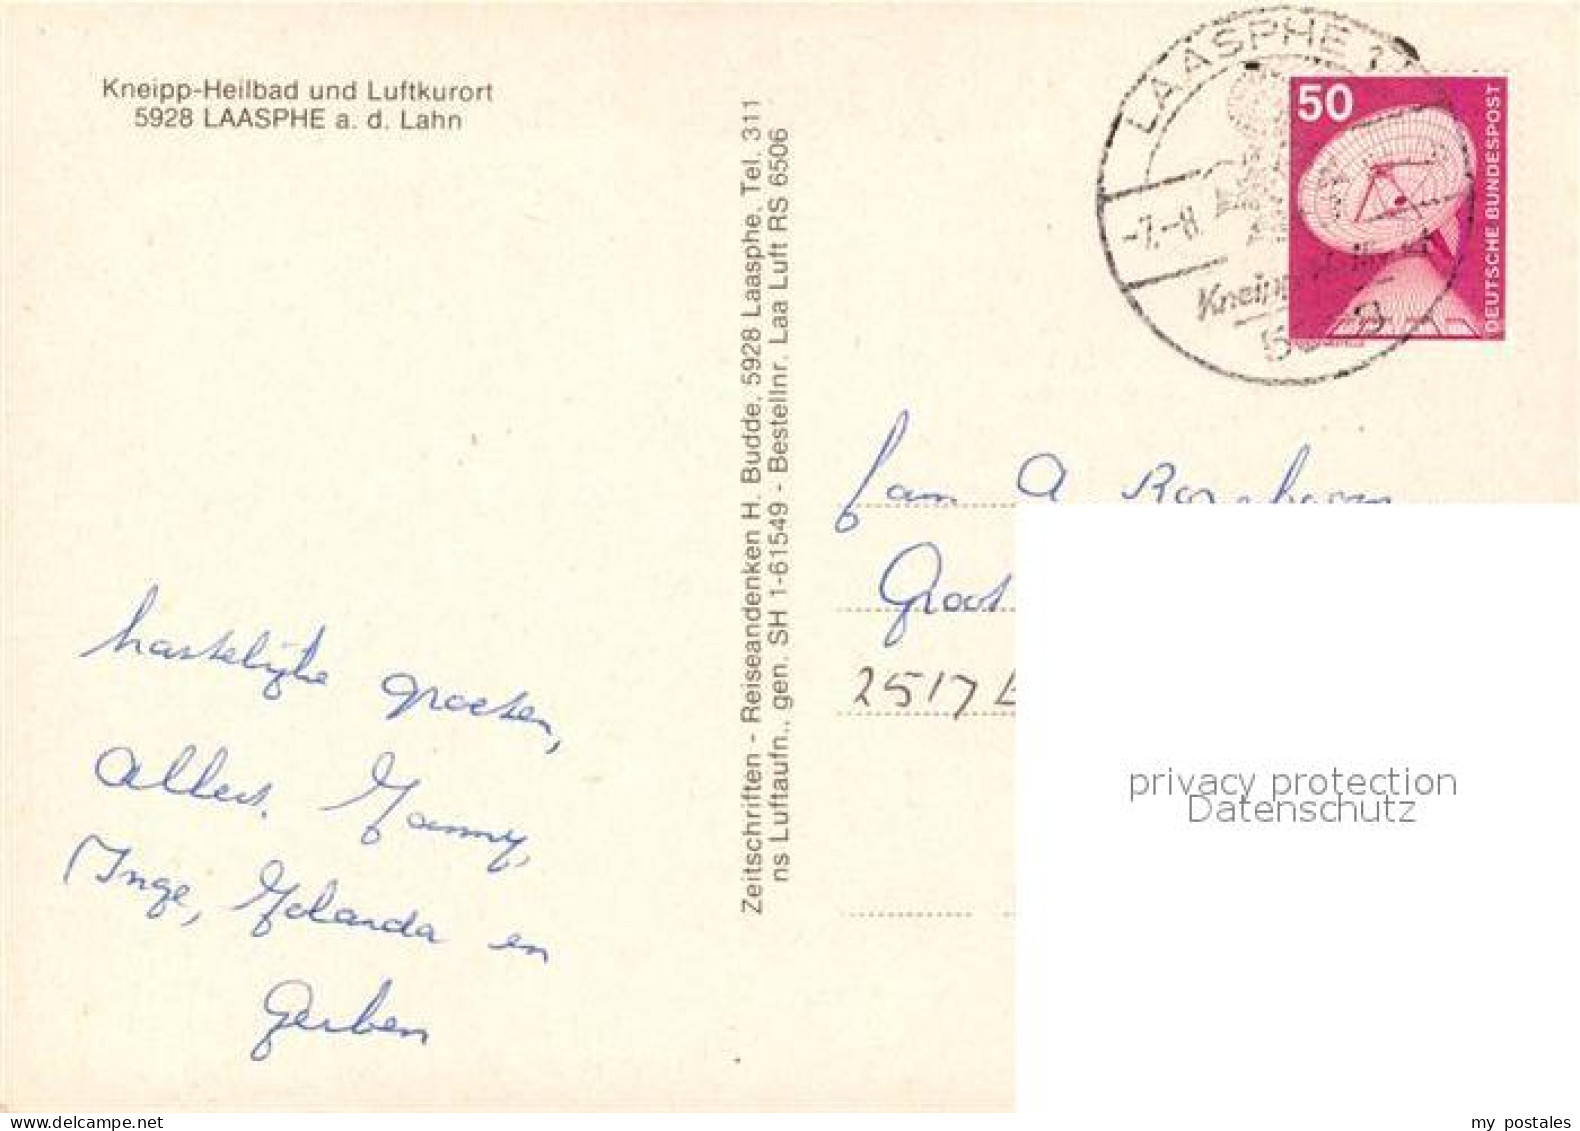 Kneipp-Heilbad und Luftkurort
5928 LAASPHE a. d. Lahn
Zeitschriften - Reiseandenken H. Budde, 5928 Laasphe, Tel. 311
ns Luftaufn., gen. SH 1-61549 - Bestellnr. Laa Luft RS 6506
LAASPHE 1
-7.-8.
50
DEUTSCHE BUNDESPOST
fam A
Groot
2517
hartelijke groeten,
Allert, Yanny,
Inge, Yolanda en
Gerben
privacy protection
Datenschutz
my postales